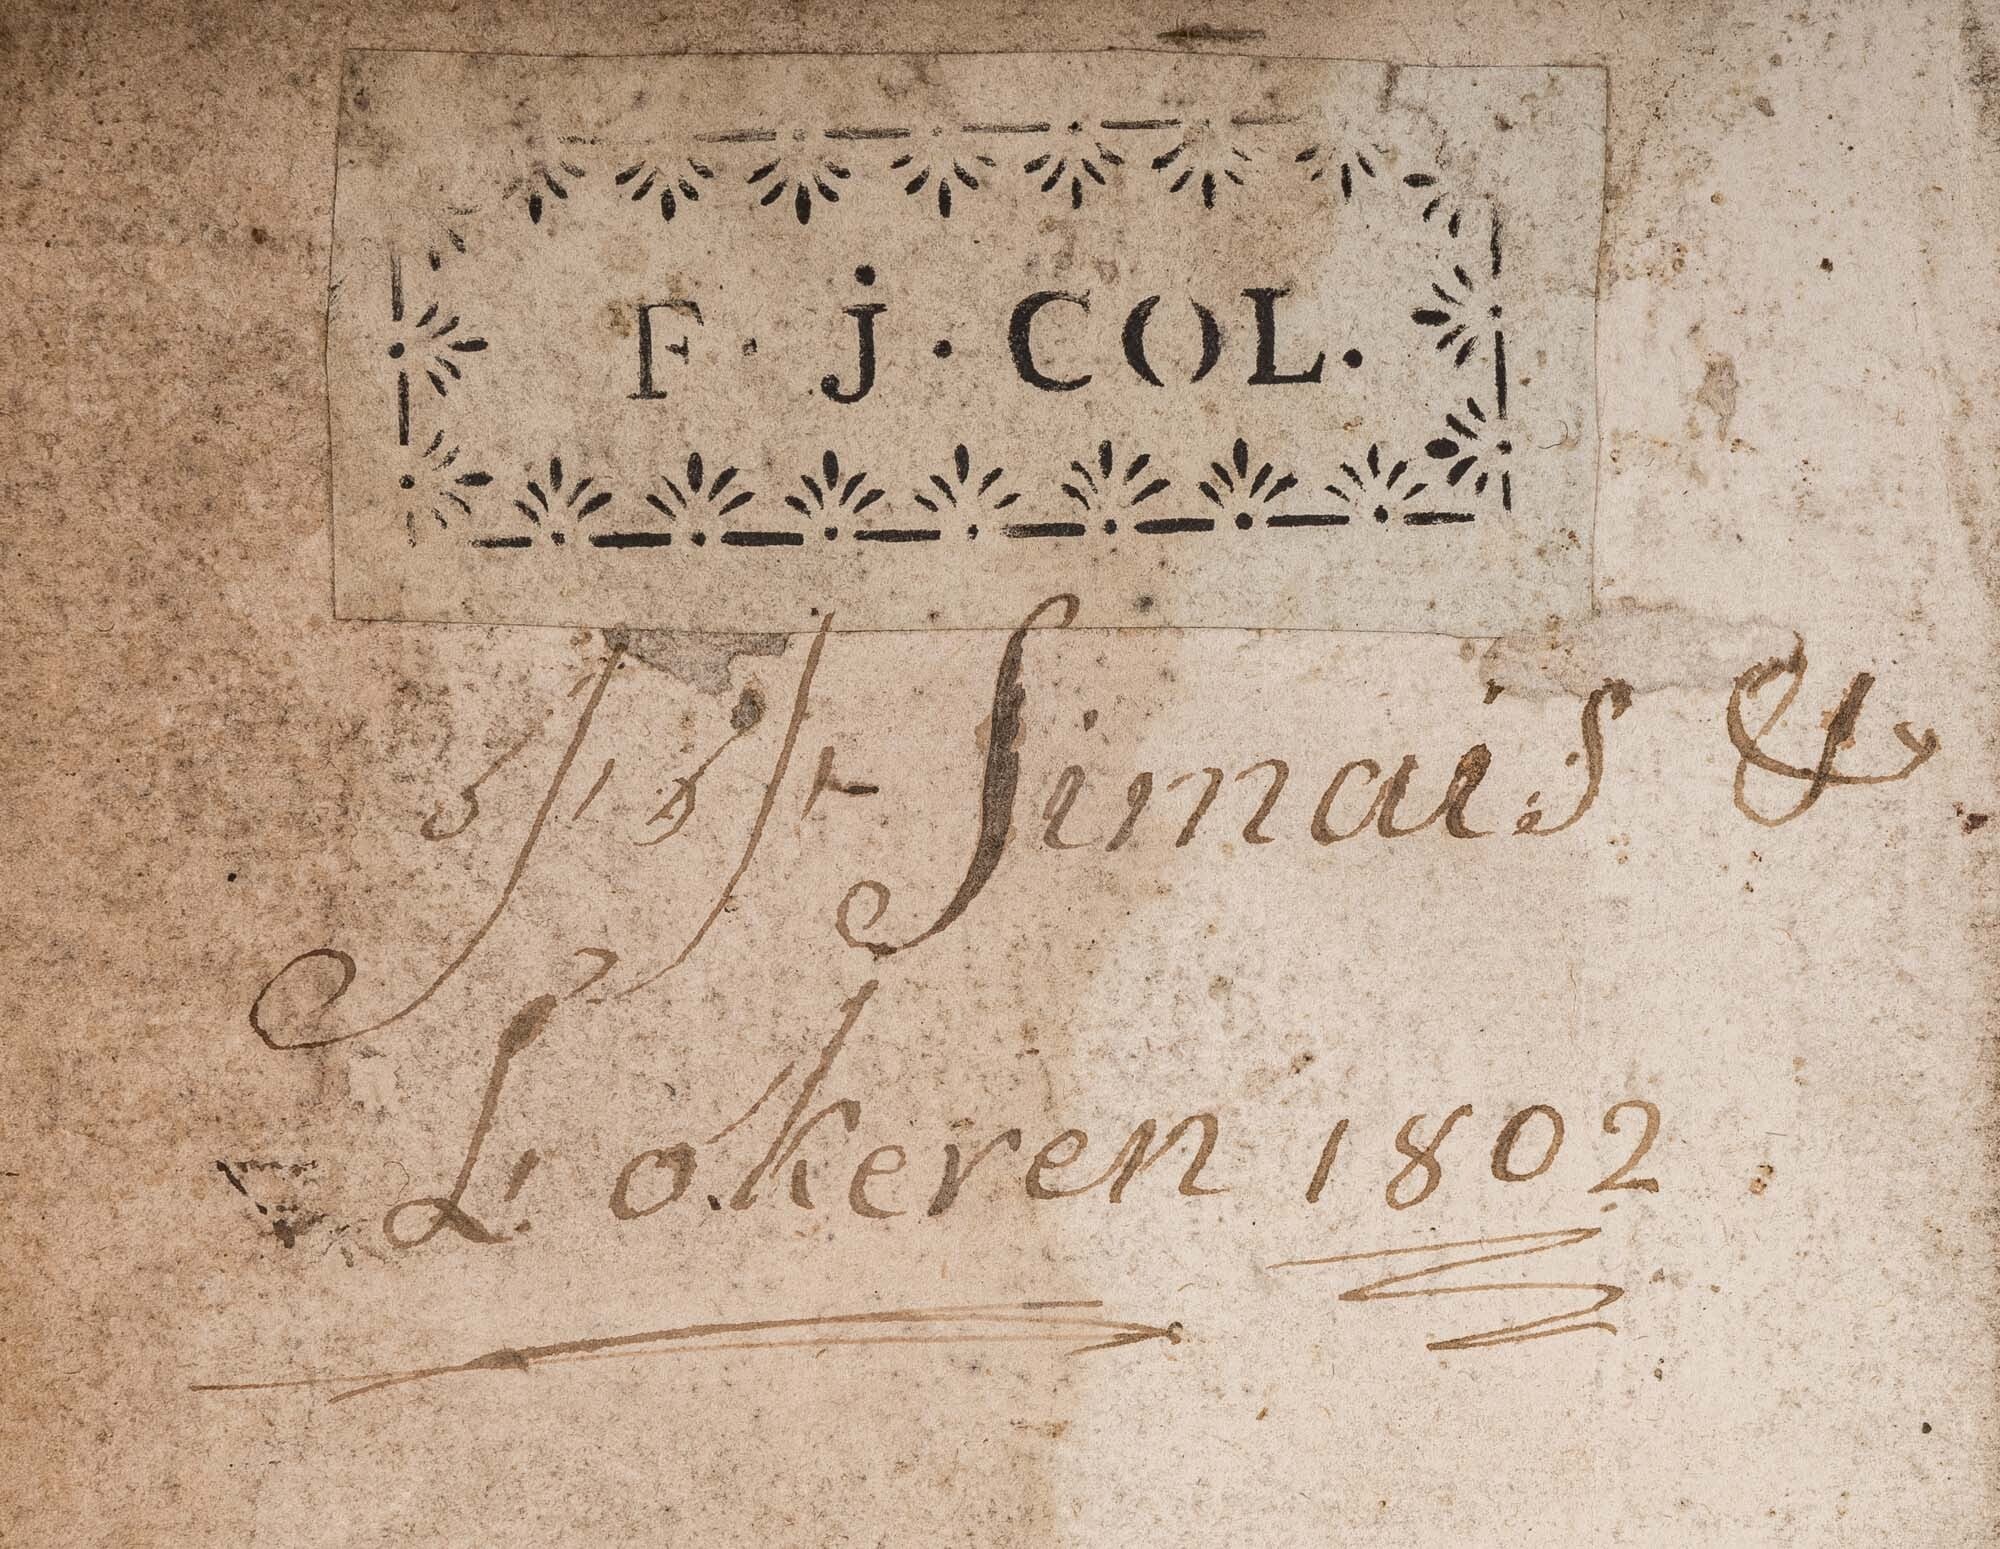 F. j. COL.
Simais &
Lokeren 1802